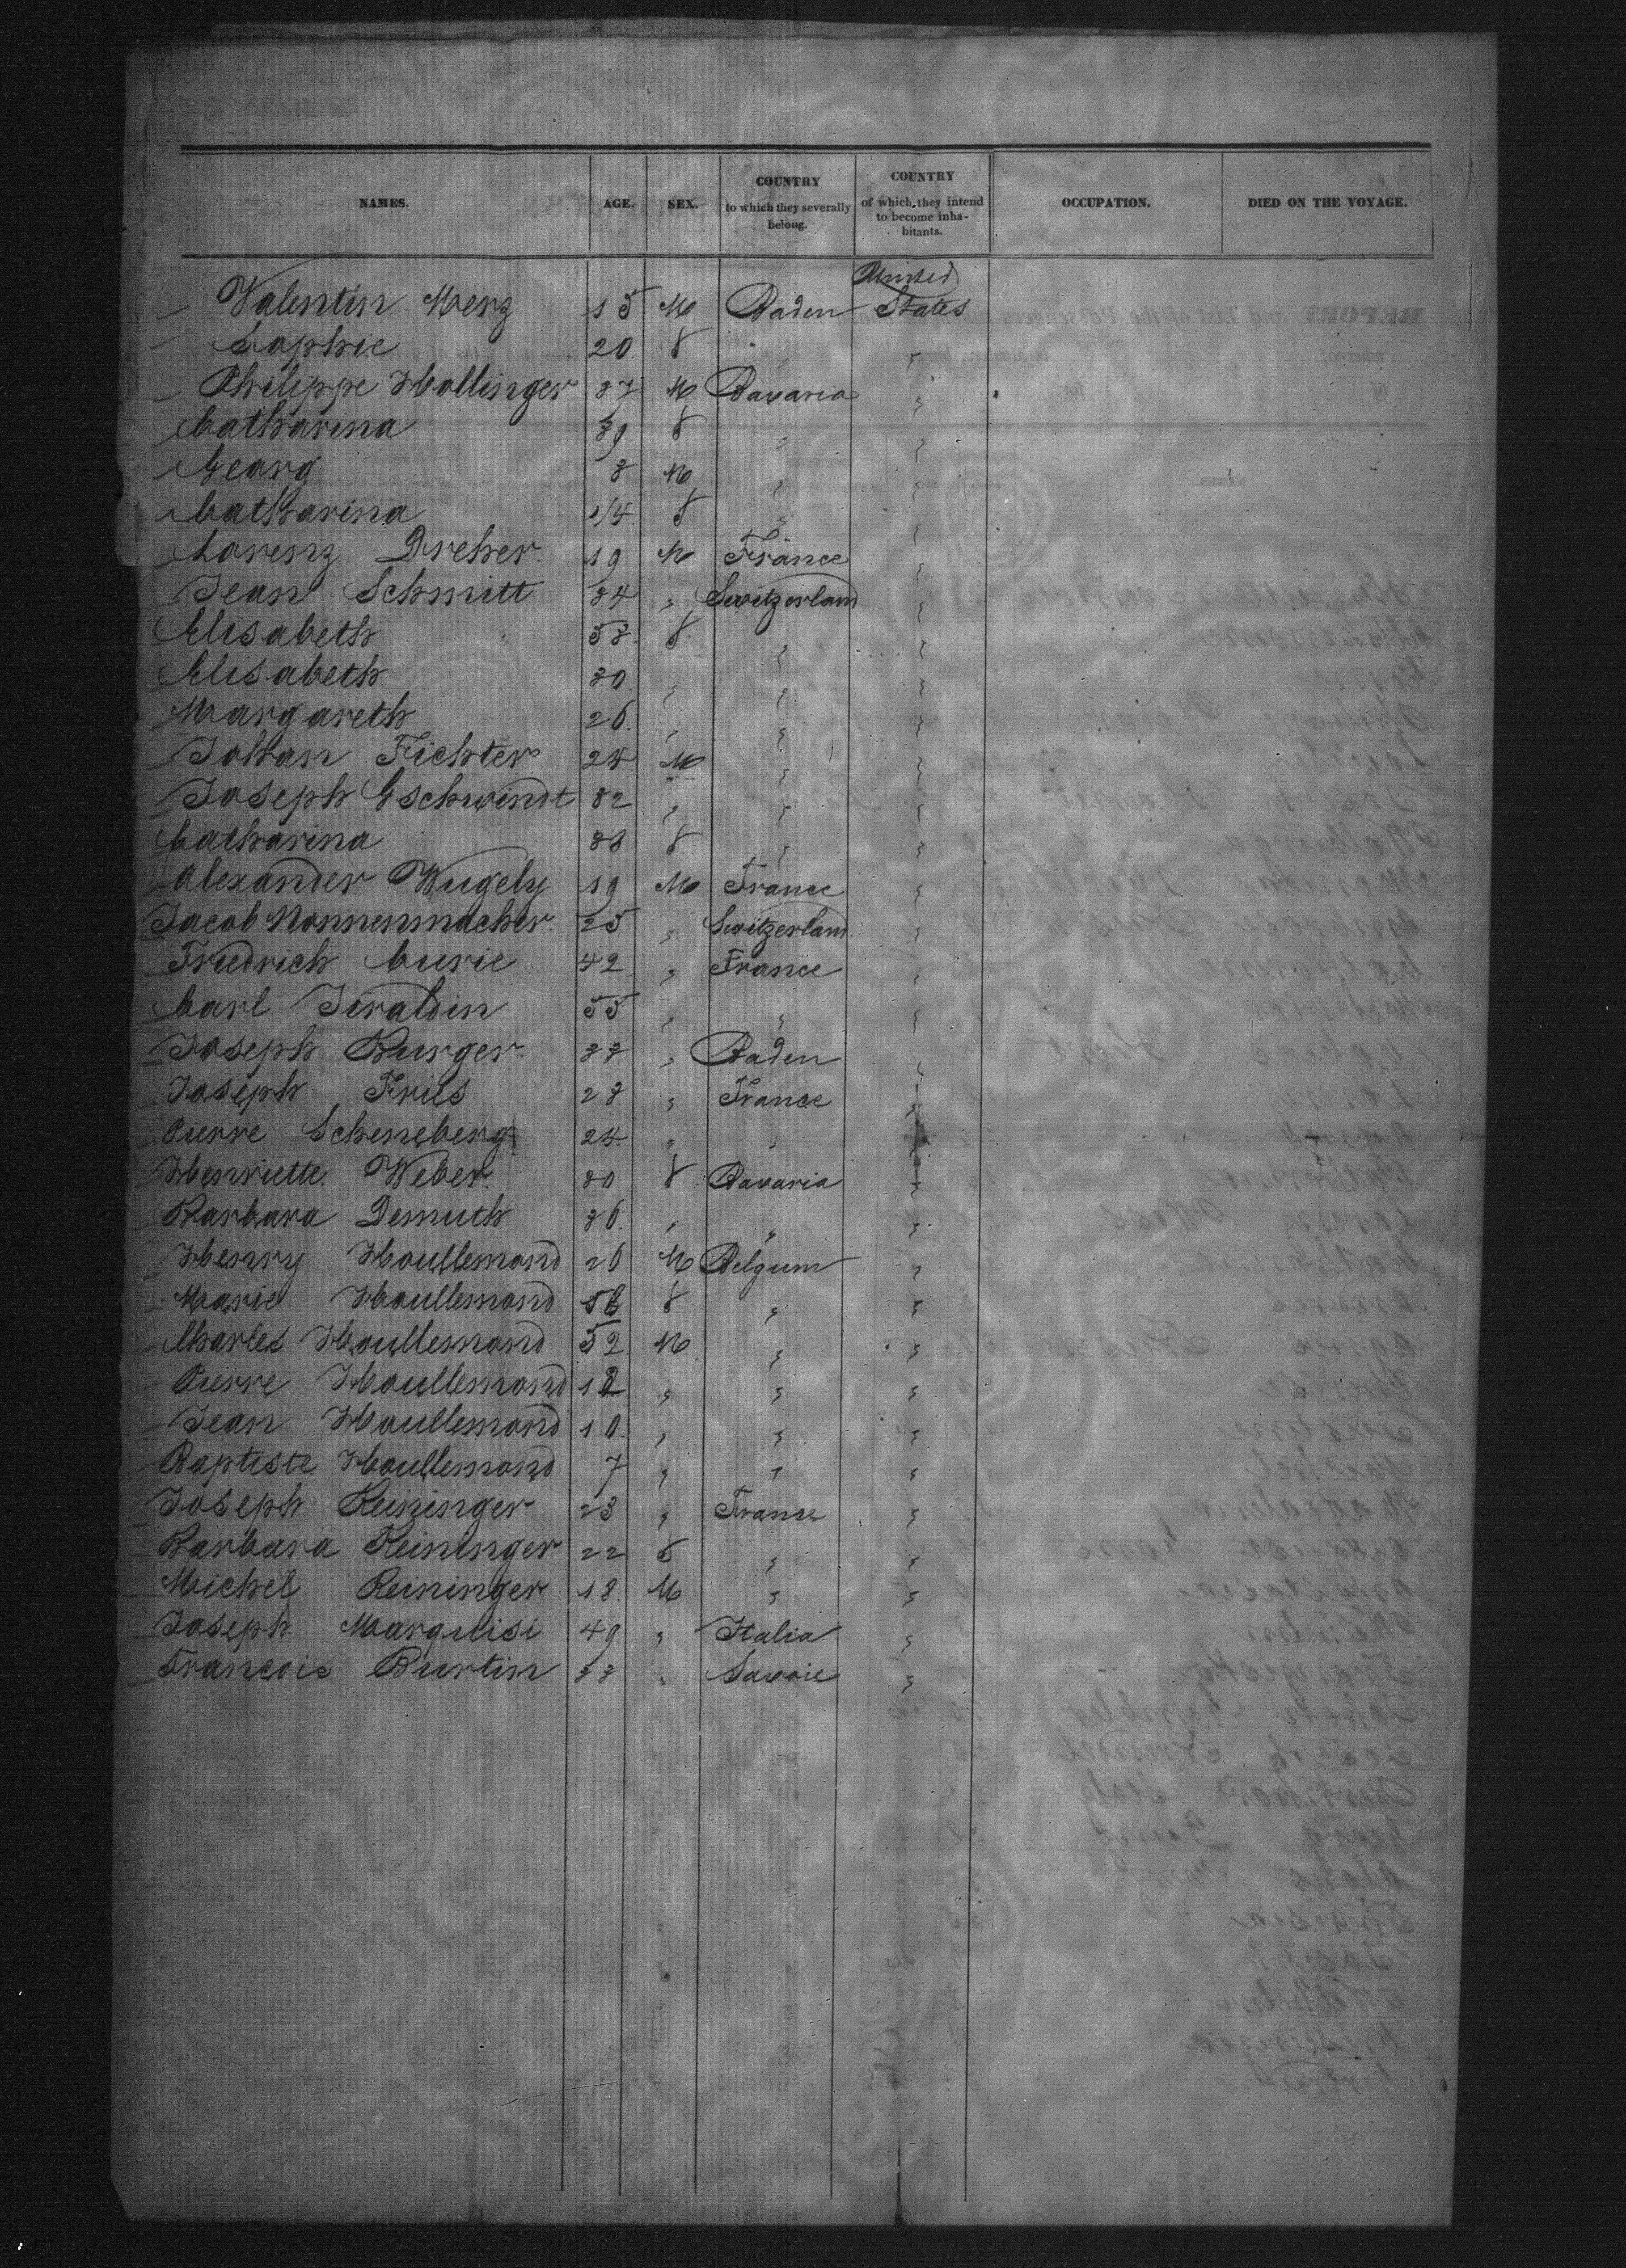 NAMES. AGE. SEX. COUNTRY to which they severally belong. COUNTRY of which they intend to become inhabitants. OCCUPATION. DIED ON THE VOYAGE.
Valentin Merz 15 M Baden United States
Sophie 20 f " "
Philippe Hollinger 37 M Bavaria "
Catharina 39 f " "
Georg 3 M " "
Catharina 1/4 f " "
Lorenz Dreher 19 M France "
Jean Schmitt 34 " Switzerland "
Elisabeth 53 f " "
Elisabeth 30 " " "
Margareth 26 " " "
Johan Fichter 24 M " "
Joseph Gschwindt 32 " " "
Catharina 33 f " "
Alexander Wugely 19 M France "
Jacob Nonnenmacher 25 " Switzerland "
Friedrich Curie 42 " France "
Carl Jiroldin 55 " " "
Joseph Burger 33 " Baden "
Joseph Fries 23 " France "
Pierre Scheneberg 24 " " "
Henriette Weber 30 f Bavaria "
Barbara Demuth 36 " " "
Henry Houllemond 26 M Belgum "
Marie Houllemond f " "
Charles Houllemond 52 M " "
Pierre Houllemond " " "
Jean Houllemond 10 " " "
Baptiste Houllemond 7 " " "
Joseph Reininger 23 " France "
Barbara Reininger 22 f " "
Michel Reininger 18 M " "
Joseph Marquisi 49 " Italia "
Francois Burtin 33 " Savoie "